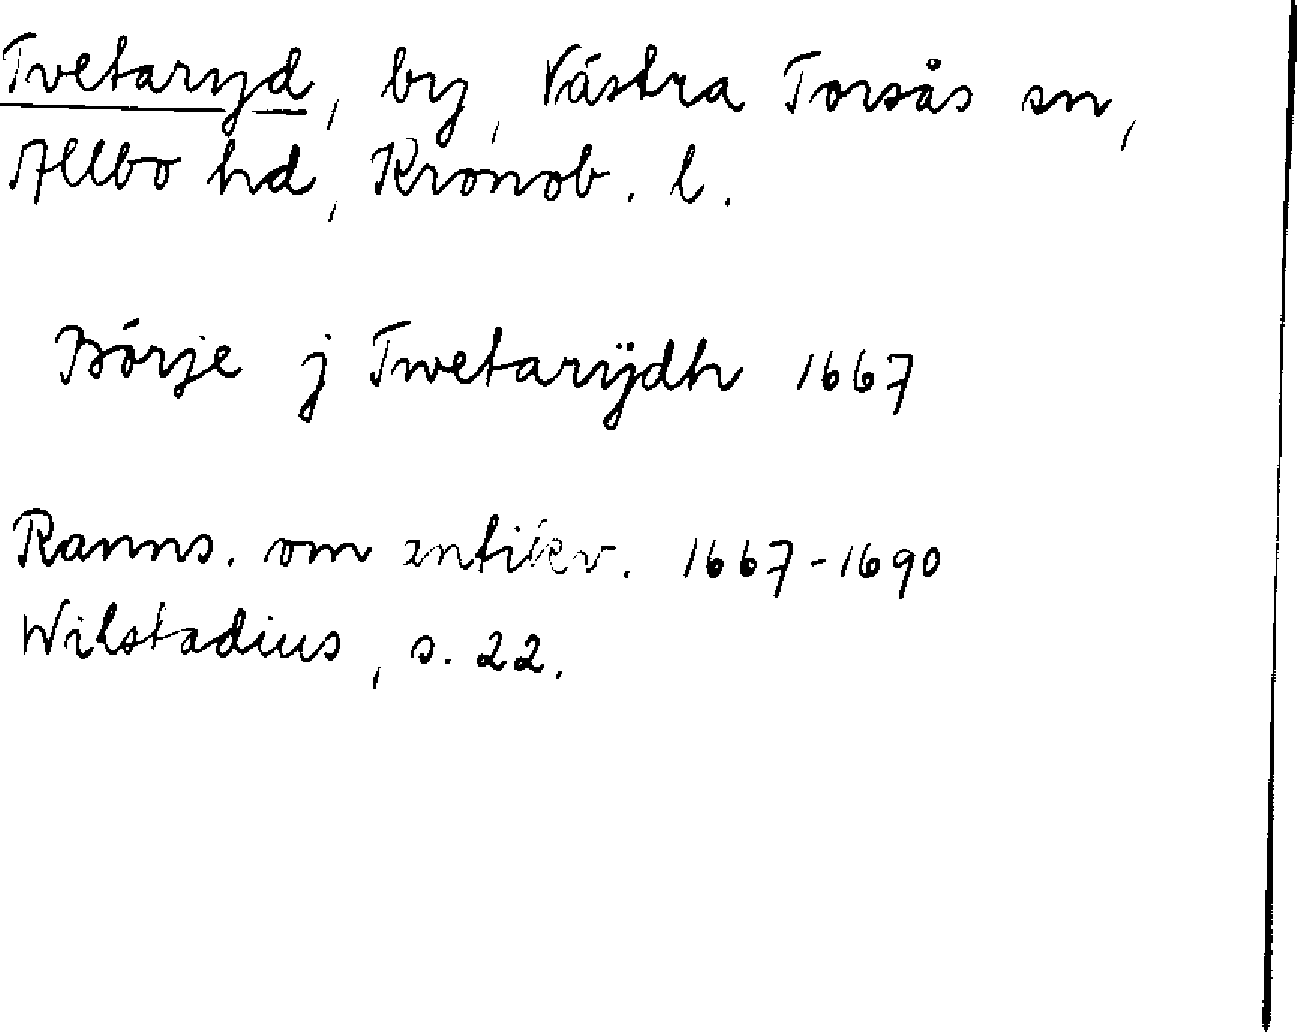 Tvetaryd, by, Västra Torsås sn,
Allbo hd, Kronob. l.
Börje j Twetarÿdh 1667
Ranns. om antikv. 1667-1690
Wilstadius, s. 22.